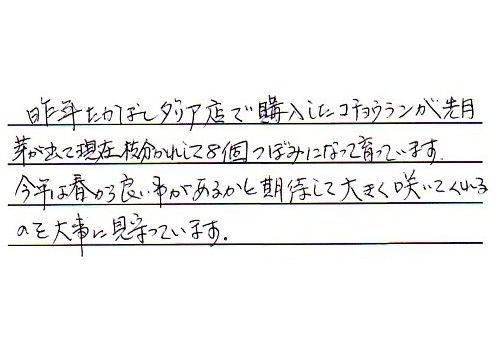 昨年たかはしダリア店で購入したコチョウランが先月
芽が出て現在枝分かれして8個つぼみになって育っています。
今年は春から良い事があるかと期待して大きく咲いてくれる
のを大事に見守っています。